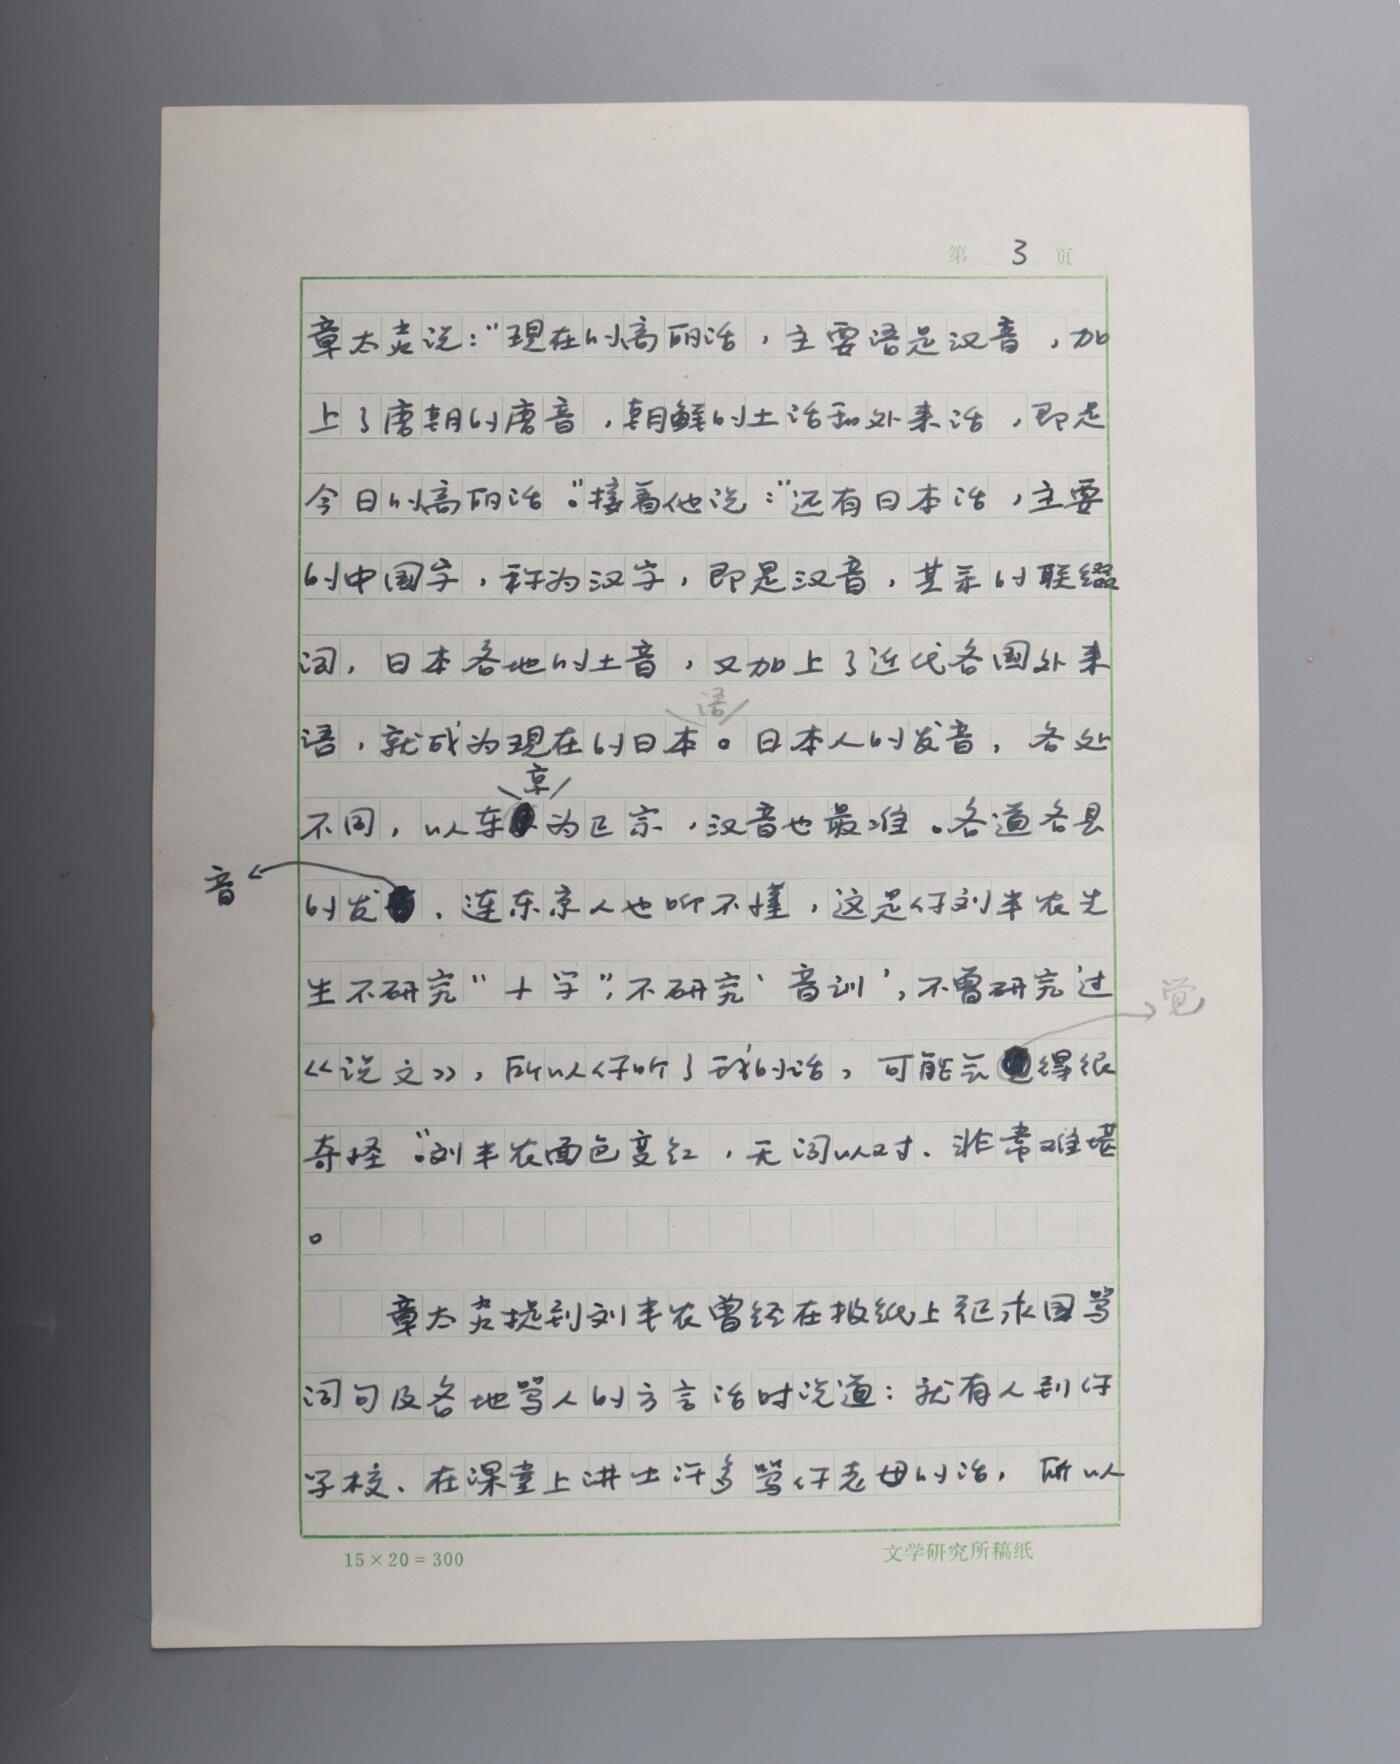 第 3 页
章太炎说：“现在的高丽话，主要语是汉音，加
上了唐朝的唐音，朝鲜的土话和外来话，即是
今日的高丽话。”接着他说：“还有日本话，主要
的中国字，称为汉字，即是汉音，其余的联缀
词，日本各地的土音，又加上了近代各国外来
语
语，就成为现在的日本。日本人的发音，各处
京
不同，以东为正宗，汉音也最准。各道各县
音
的发，连东京人也听不懂，这是你刘半农先
生不研究“小学”，不研究‘音训’，不曾研究过
觉
《说文》，所以你听了我的话，可能会得很
奇怪。”刘半农面色变红，无词以对、非常难堪
。
章太炎提到刘半农曾经在报纸上征求国骂
词句及各地骂人的方言话时说道：就有人到你
学校、在课堂上讲出许多骂你老母的话，所以
15×20=300
文学研究所稿纸